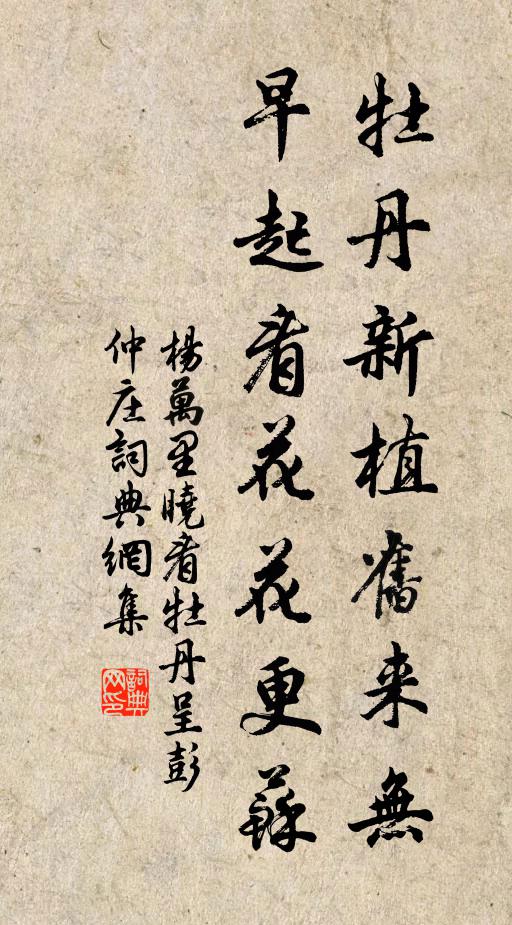 牡丹新植舊来無
早起看花花更蘇
楊萬里曉看牡丹呈彭
仲庄詞典網集
詞典网印